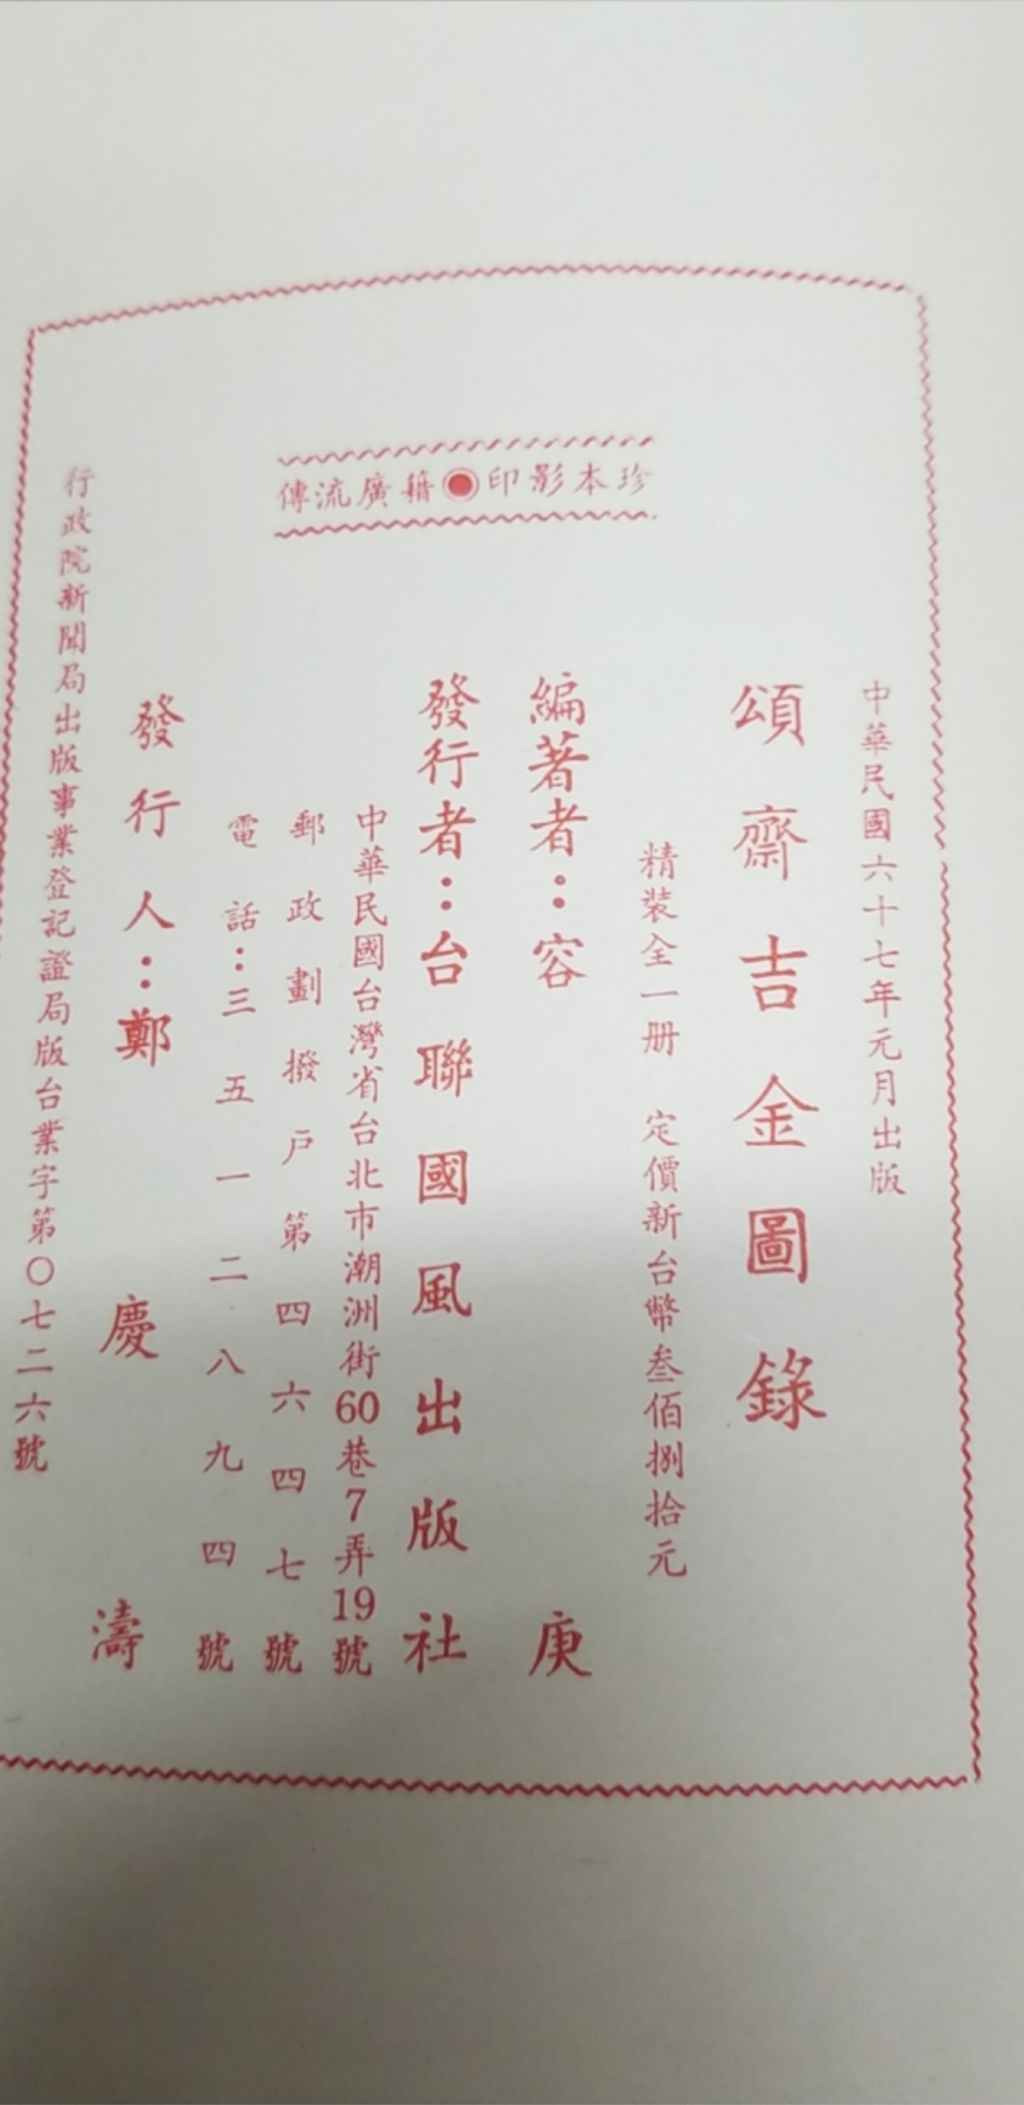 珍本影印◉籍廣流傳
中華民國六十七年元月出版
頌齋吉金圖錄
精裝全一冊　定價新台幣叁佰捌拾元
編著者：容庚
發行者：台聯國風出版社
中華民國台灣省台北市潮洲街60巷7弄19號
郵政劃撥戶第四六四七號
電話：三五一二八九四號
發行人：鄭慶濤
行政院新聞局出版事業登記證局版台業字第〇七二六號